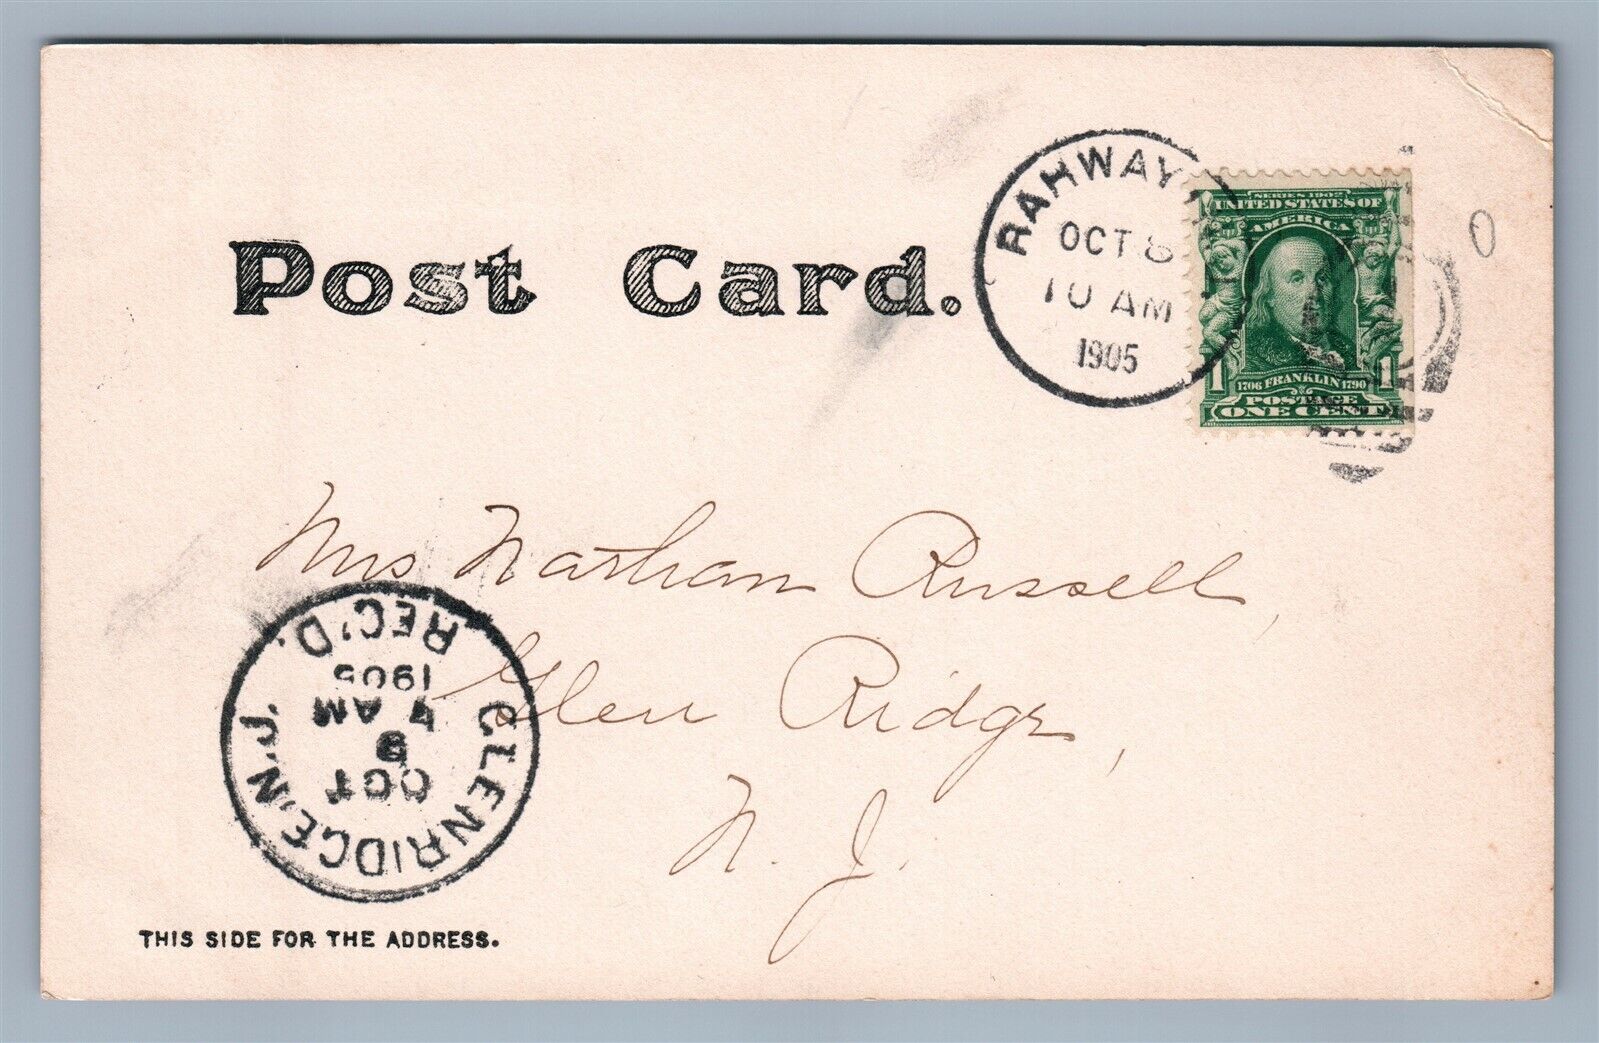 Post Card.
RAHWAY,
OCT 8
10 AM
1905
SERIES 1902
UNITED STATES OF
AMERICA
1706 FRANKLIN 1790
1 1
POSTAGE
ONE CENT
0
Mrs Nathan Russell,
Glen Ridge,
N. J.
GLENRIDGE, N.J.
OCT
9
AM
1905
REC'D.
THIS SIDE FOR THE ADDRESS.